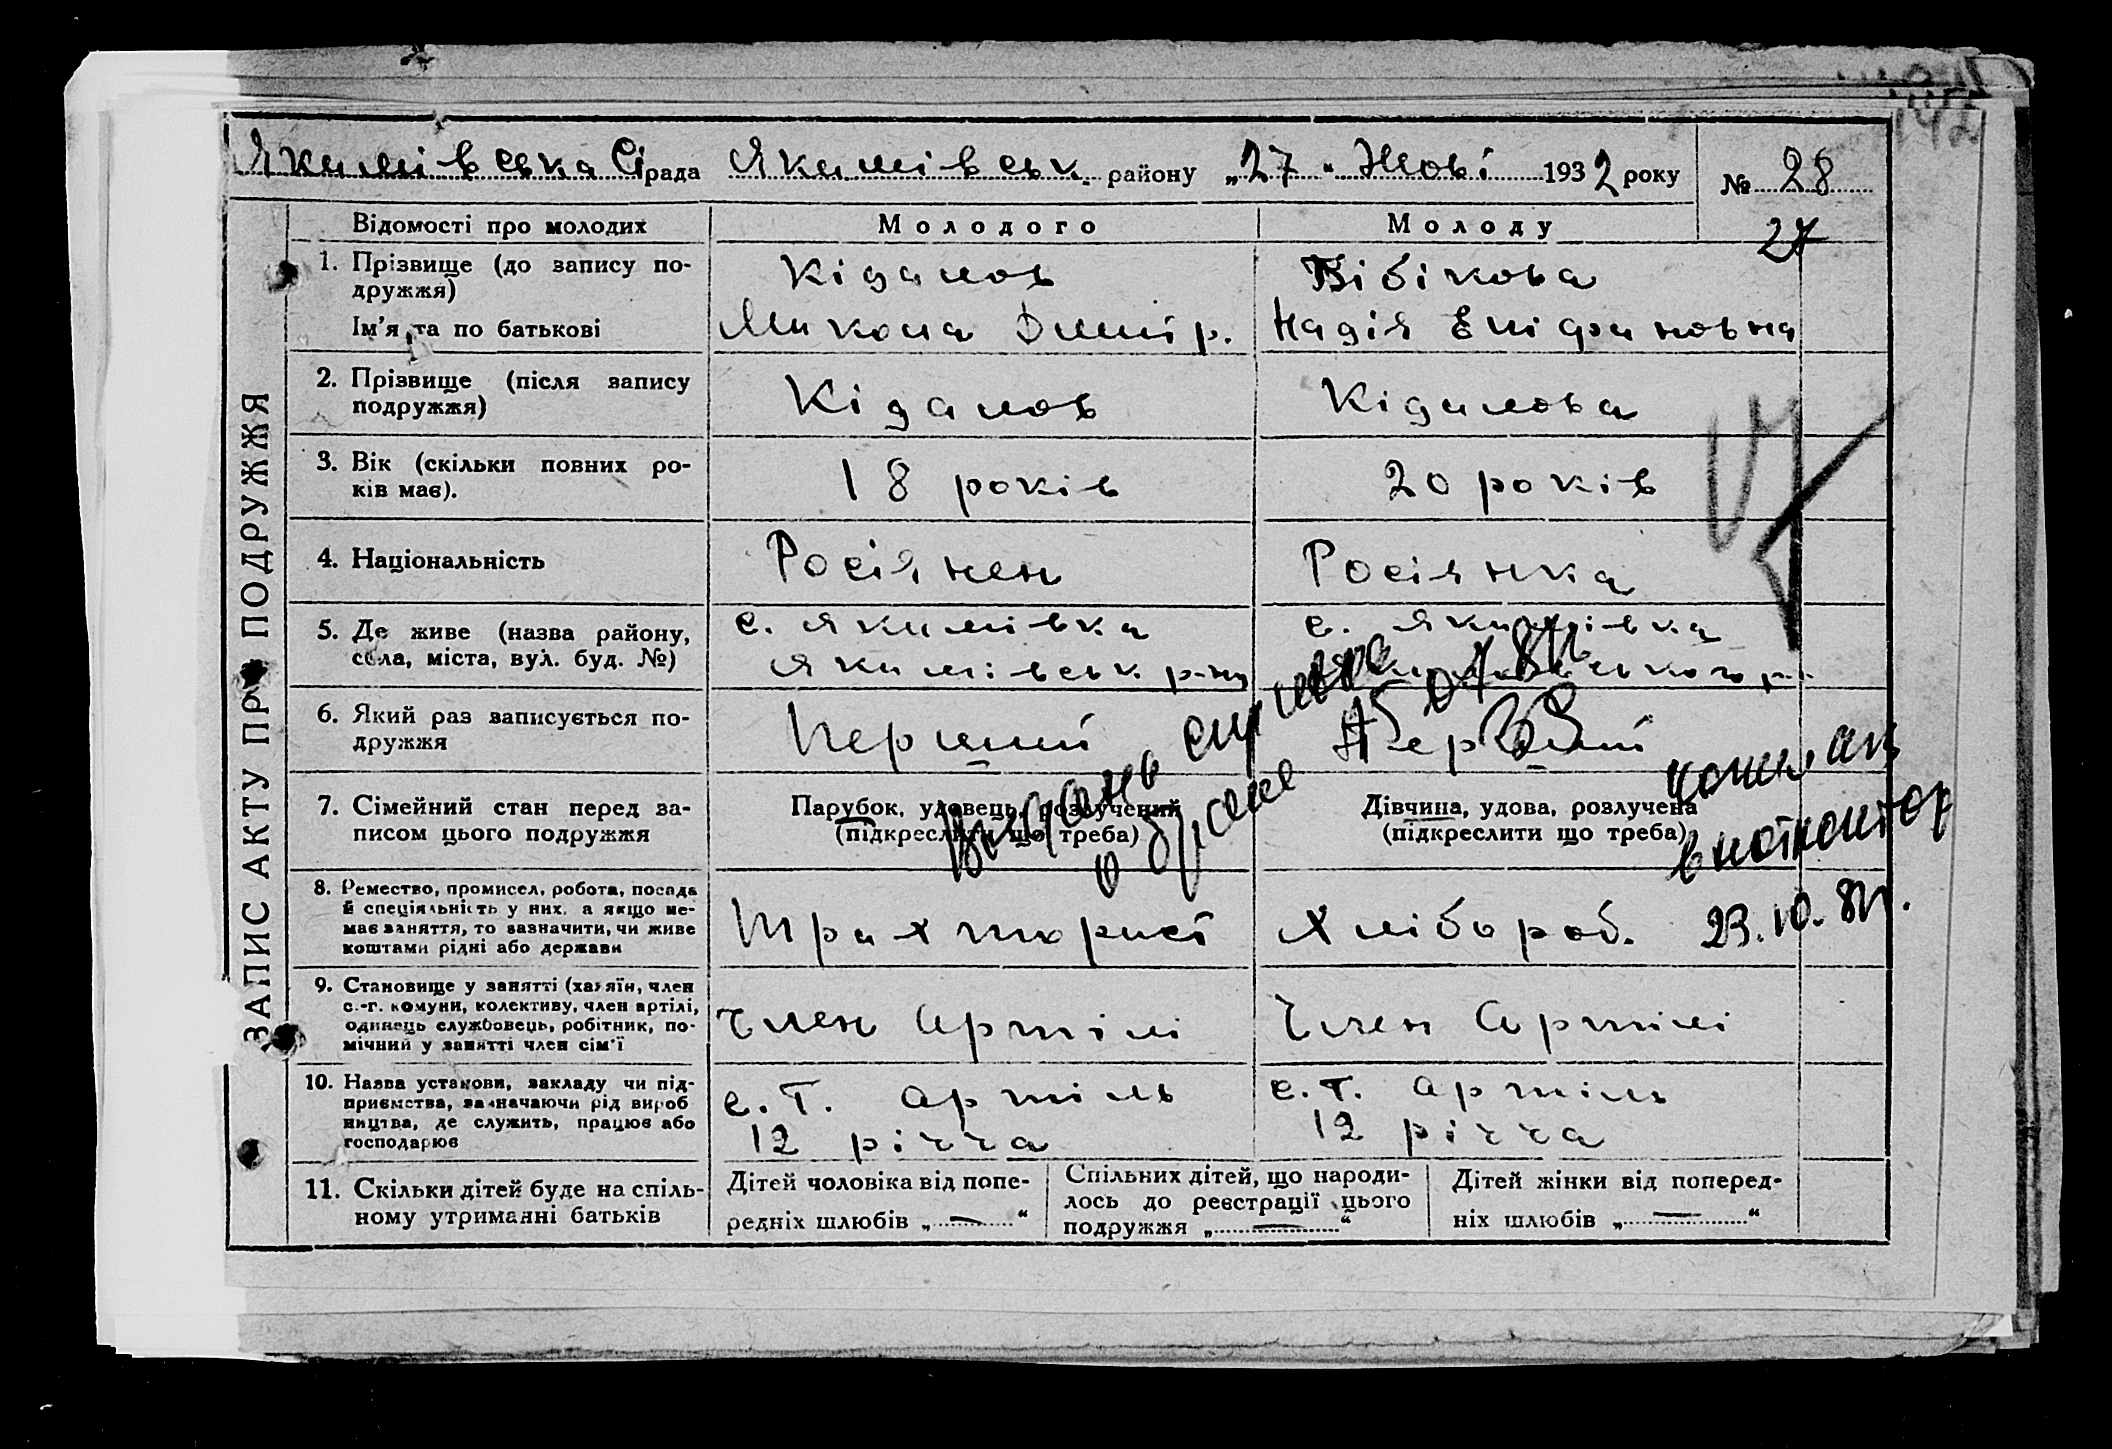 Якимівська Сірада Якимівськ. району „27“ Жові 1932 року № 28
27
ЗАПИС АКТУ ПРО ПОДРУЖЖЯ
Відомості про молодих Молодого Молоду
1. Прізвище (до запису по-
дружжя) Кідалов Бібікова
Ім'я та по батькові Микола Дмитр. Надія Епіфановна
2. Прізвище (після запису
подружжя) Кідалов Кідалова
3. Вік (скільки повних ро-
ків має). 18 років 20 років
4. Національність Росіянен Росіянка
5. Де живе (назва району,
села, міста, вул. буд. №)
с. Якимівка
Якимівськ. р-ну
с. Якимівка
Якимівського р.
6. Який раз записується по-
дружжя Перший Перший
7. Сімейний стан перед за-
писом цього подружжя
Парубок, удовець, розлучений
(підкреслити що треба)
Дівчина, удова, розлучена
(підкреслити що треба)
8. Ремество, промисел, робота, посада
й спеціяльність у них, а якщо не-
має заняття, то зазначити, чи живе
коштами рідні або держави
Трахторист Хлібороб.
о браке
23.10.81г.
9. Становище у занятті (хазяїн, член
с.-г. комуни, колективу, член артілі,
одинець службовець, робітник, по-
мічний у занятті член сім'ї
Член Артілі Член Артілі
10. Назва установи, закладу чи під-
приємства, зазначаючи рід вироб
ництва, де служить, працює або
господарює
с. г. артіль
12 річча
с. г. артіль
12 річча
11. Скільки дітей буде на спіль-
ному утриманні батьків
Дітей чоловіка від попе-
редніх шлюбів „—“
Спільних дітей, що народи-
лось до реєстрації цього
подружжя „—“
Дітей жінки від поперед-
ніх шлюбів „—“